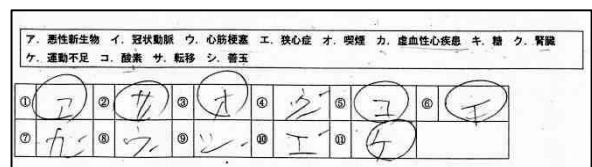 ア．悪性新生物 イ．冠状動脈 ウ．心筋梗塞 エ．狭心症 オ．喫煙 カ．虚血性心疾患 キ．糖 ク．腎臓
ケ．運動不足 コ．酸素 サ．転移 シ．善玉
① ア ② サ ③ オ ④ ⑤ コ ⑥ キ
⑦ カ ⑧ ウ ⑨ シ ⑩ エ ⑪ ケ